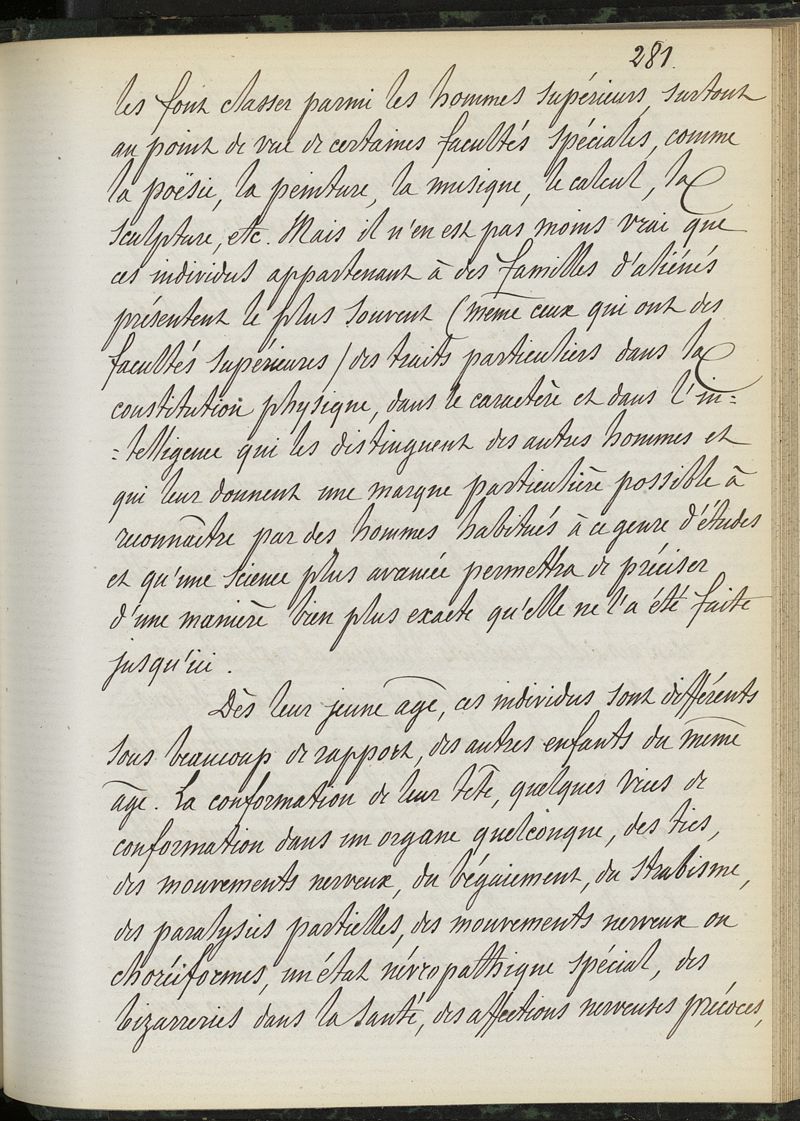 281.
les font classer parmi les hommes supérieurs, surtout
au point de vue de certaines facultés spéciales, comme
la poësie, la peinture, la musique, le calcul, la
sculpture, etc. Mais il n'en est pas moins vrai que
ces individus appartenant à des familles d'aliénés
présentent le plus souvent (même ceux qui ont des
facultés supérieures) des traits particuliers dans la
constitution physique, dans le caractère et dans l'in=
=telligence qui les distinguent des autres hommes et
qui leur donnent une marque particulière possible à
reconnaître par des hommes habitués à ce genre d'études
et qu'une science plus avancée permettra de préciser
d'une manière bien plus exacte qu'elle ne l'a été faite
jusqu'ici.
Dès leur jeune âge, ces individus sont différents
sous beaucoup de rapport, des autres enfants du même
âge. La conformation de leur tête, quelques vices de
conformation dans un organe quelconque, des tics,
des mouvements nerveux, du bégaiement, du strabisme,
des paralysies partielles, des mouvements nerveux ou
choréiformes, un état névropathique spécial, des
bizarreries dans la santé, des affections nerveuses précoces,